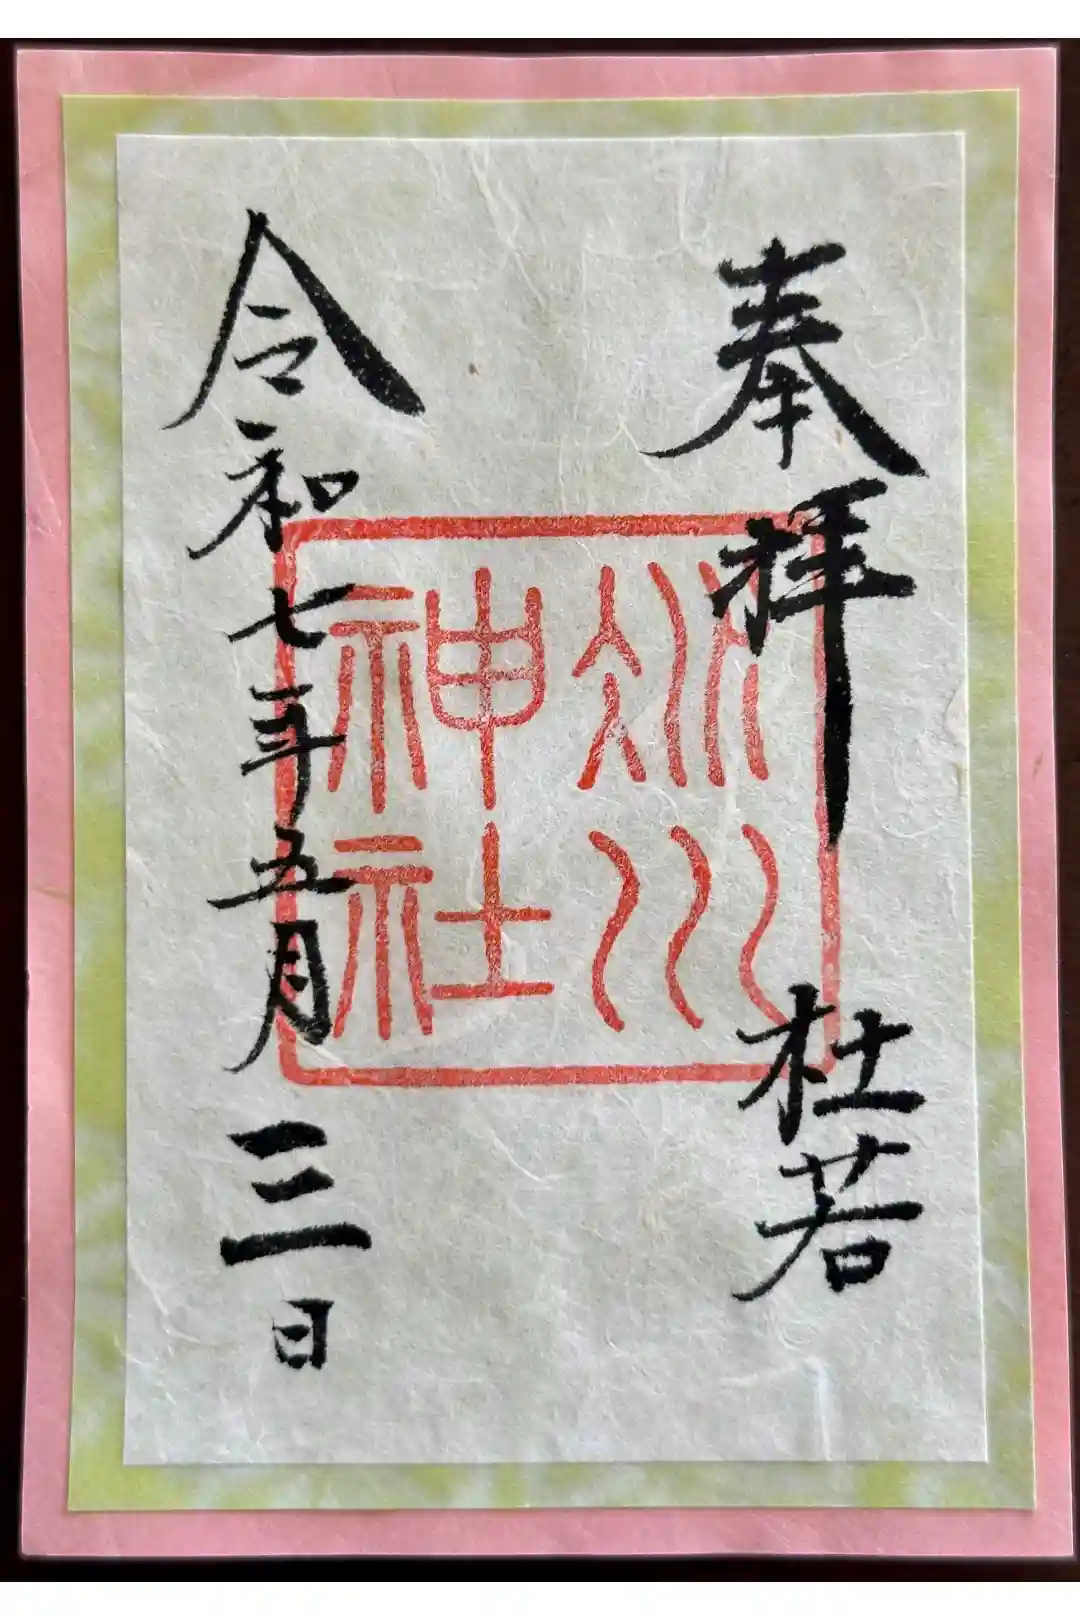 奉拝 杜若
氷川
神社
令和七年五月三日